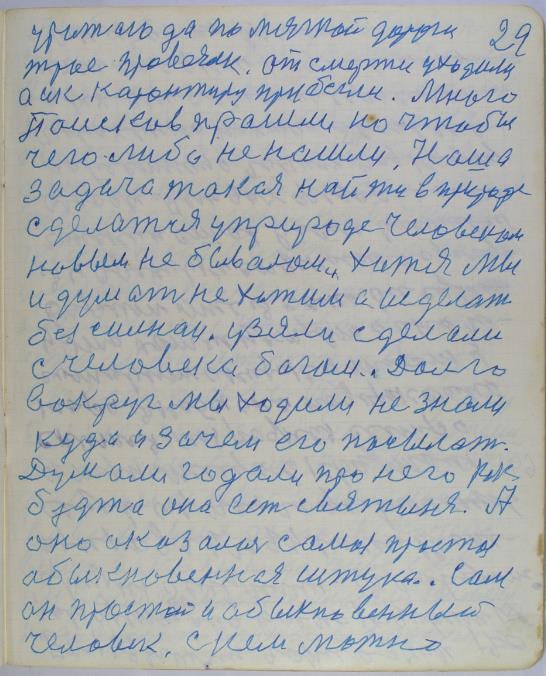 29
да по мягкой дороги
трое провожак. От смерти уходили
а ик прибегли. Много
Поисков прашли но чтобы
чего либо не нашли. Наша
задача такая найти в природе
сделатся у природе человеком
новым не бывалом, хатя мы
и думат не хатим а и сделат
без силнаи. взяли сделали
с человека богом.. Долго
вокруг мы ходили не знали
куда и зачем его посылат.
Думали годали про него как
будта она ест святыня. А
оно оказалась самая простая
обыкновенная штука.. Сам
он простой и обыкновенный
человек, с кем можно